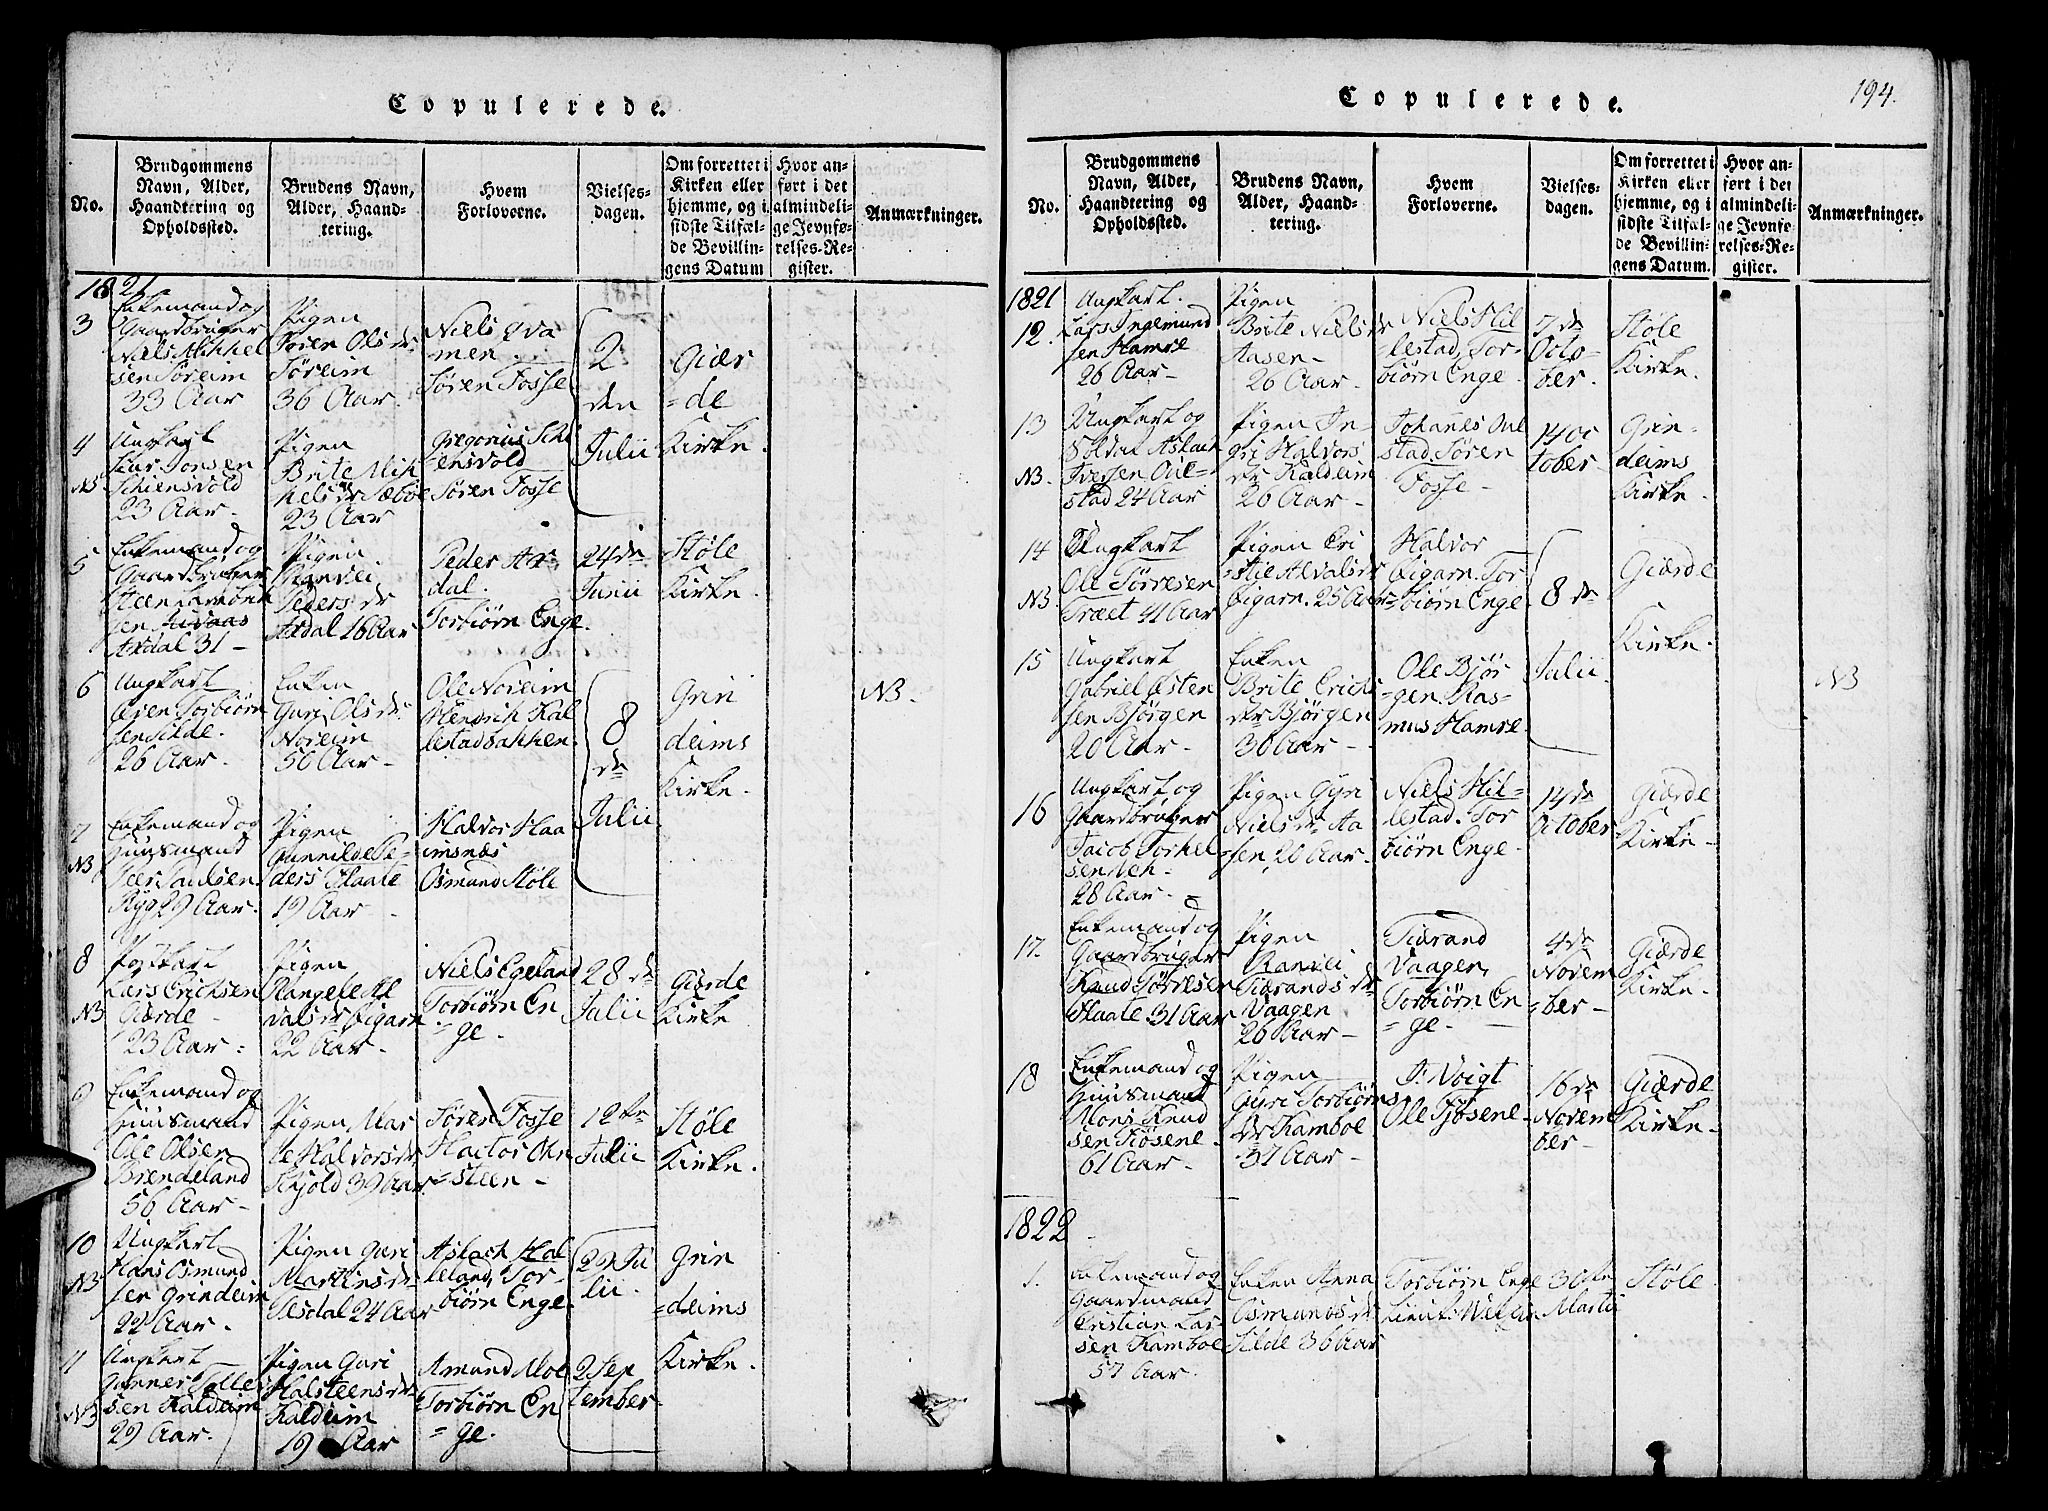 Copulerede.
No.
Brudgommens
Navn, Alder,
Haandtering og
Opholdssted.
Brudens Navn,
Alder, Haand-
tering.
Hvem
Forloverne.
Vielses-
dagen.
Om forrettet i
Kirken eller
hjemme, og i
sidste Tilfæl-
de Bevillin-
gens Datum
Hvor an-
ført i det
almindeli-
ge Jevnfø-
relses-Re-
gister.
Anmærkninger.
1821
3
Enkemand og
Gaardbruger
Niels Mikkel
sen Søreim
33 Aar
Pigen
Olsdr
Søreim
36 Aar.
Niels Qva
men.
Søren Fosse
2
den
Julii
Giær
=de
Kirke.
4
NB
Ungkarl
Jonsen
Schiensvold
23 Aar.
Pigen
Brite Mik
kelsdr Sæbøe
23 Aar
Gregorius Schi
=ensvold
Søren Fosse
5
Enkemand og
Gaardbruger
Steen
sen
Axdal 31 -
Pigen
Ranvei
Pedersdr
Axdal 16 Aar
Peder Ax
dal.
Torbiørn Enge.
24de
Junii
Støle
Kirke.
6
Ungkarl
Torbiørn
sen Silde.
26 Aar.
Enken
Guri Olsdr.
Noreim
50 Aar -
Ole Noreim
Hendrik Kal
lestadbakken.
8
de
Julii
Grin
deims
Kirke.
NB.
7
NB
Enkemand og
Huusmand
Peer Paulsen
Ryg 29 Aar.
Pigen
Gunnilde Pe-
ders Flaate
19 Aar -
Halvor Haa
imsnæs
Osmund Støle
8
NB
Postkarl
Lars Erichsen
Giærde -
23 Aar -
Pigen
Rangele Al
valsdr Øigarn
22 Aar -
Niels Egeland
Torbiørn En
=ge.
28de
Julii
Giærde
Kirke
9
Enkemand og
Huusmand
Ole Olsen
Brendeland
56 Aar -
Pigen Mar
te Halvorsdr
Skjold 39 Aar
Søren Fosse
Hactor Øln
=steen -
12te
Julii
Støle
Kirke.
10
NB
Ungkarl
Hans Osmund
sen Grindeim
22 Aar.
Pigen Guri
Martinsdr
Ølsdal 24 Aar
Aslach Hal
leland, Tor-
biørn Enge.
29 Ju
lii.
Grin
=deims
Kirke.
11
NB
Ungkarl
Gunner Tolle
sen Kaldeim
29 Aar.
Pigen Guri
Halsteensdr
Kaldeim
19 Aar
Amund Moe
Torbiørn En
=ge.
2 Sep
tember
Copulerede.
194.
No.
Brudgommens
Navn, Alder,
Haandtering og
Opholdssted.
Brudens Navn,
Alder, Haand-
tering.
Hvem
Forloverne.
Vielses-
dagen.
Om forrettet i
Kirken eller
hjemme, og i
sidste Tilfæl-
de Bevillin-
gens Datum.
Hvor an-
ført i det
almindeli-
ge Jevnfø-
relses-Re-
gister.
Anmærkninger.
1821
12.
Ungkarl.
Lars Ingemund
sen Hamre
26 Aar -
Pigen
Brite Nielsdr
Aasen -
26 Aar -
Niels Hil
lestad, Tor-
biørn Enge -
7de
Octo-
ber.
Støle
Kirke.
13
NB.
Ungkarl og
Soldat Aslach
Iversen Øvl-
stad 24 Aar
Pigen In-
gri Halvors
dr Kaldeim
20 Aar -
Johannes Øvl
stad. Søren
Fosse -
14 Oc
tober -
Grin-
deims
Kirke.
14
NB
Ungkarl
Ole Tørresen
Træet 41 Aar
Pigen Cri
=stie Alvalsdr
Øigarn. 25 Aar
Halvor
Øigarn. Tor
=biørn Enge.
8de
Julii.
Giærde
Kirke.
15
Ungkarl
Gabriel Østen
sen Bjørgen
20 Aar -
Enken
Brite Erichs
dr Bjørgen
30 Aar -
Ole Bjør
=gen. Ras-
mus Hamre.
NB
16
Ungkarl og
Gaardbruger
Jacob Torkel
sen
28 Aar -
Pigen Gyri
Nielsdr Aa
=sen 20 Aar.
Niels Hil-
lestad. Tor
biørn Enge -
14de
October
Giærde
Kirke -
17.
Enkemand og
Gaardbruger
Knud Tørresen
Flaate 31 Aar
Pigen
Ranvei
Tiærandsdr
Vaagen
26 Aar -
Tiærand
Vaagen,
Torbiørn En
=ge. -
4de
Novem
=ber -
Giærde
Kirke.
18
Enkemand og
Huusmand
Mons Knud
sen Fiøsene.
61 Aar -
Pigen
Gyri Torbiørns
dr Kamboe
37 Aar -
J. Voigt
Ole Fjøsene.
16de
Novem
ber -
Giærde
Kirke -
1822
1.
Enkemand og
Gaardmand
Cristian Lar-
sen Kamboe
57 Aar.
Enken Anna
Osmundsdr
Silde 36 Aar
Torbiørn Enge
Lieut.
30te
Martii
Støle